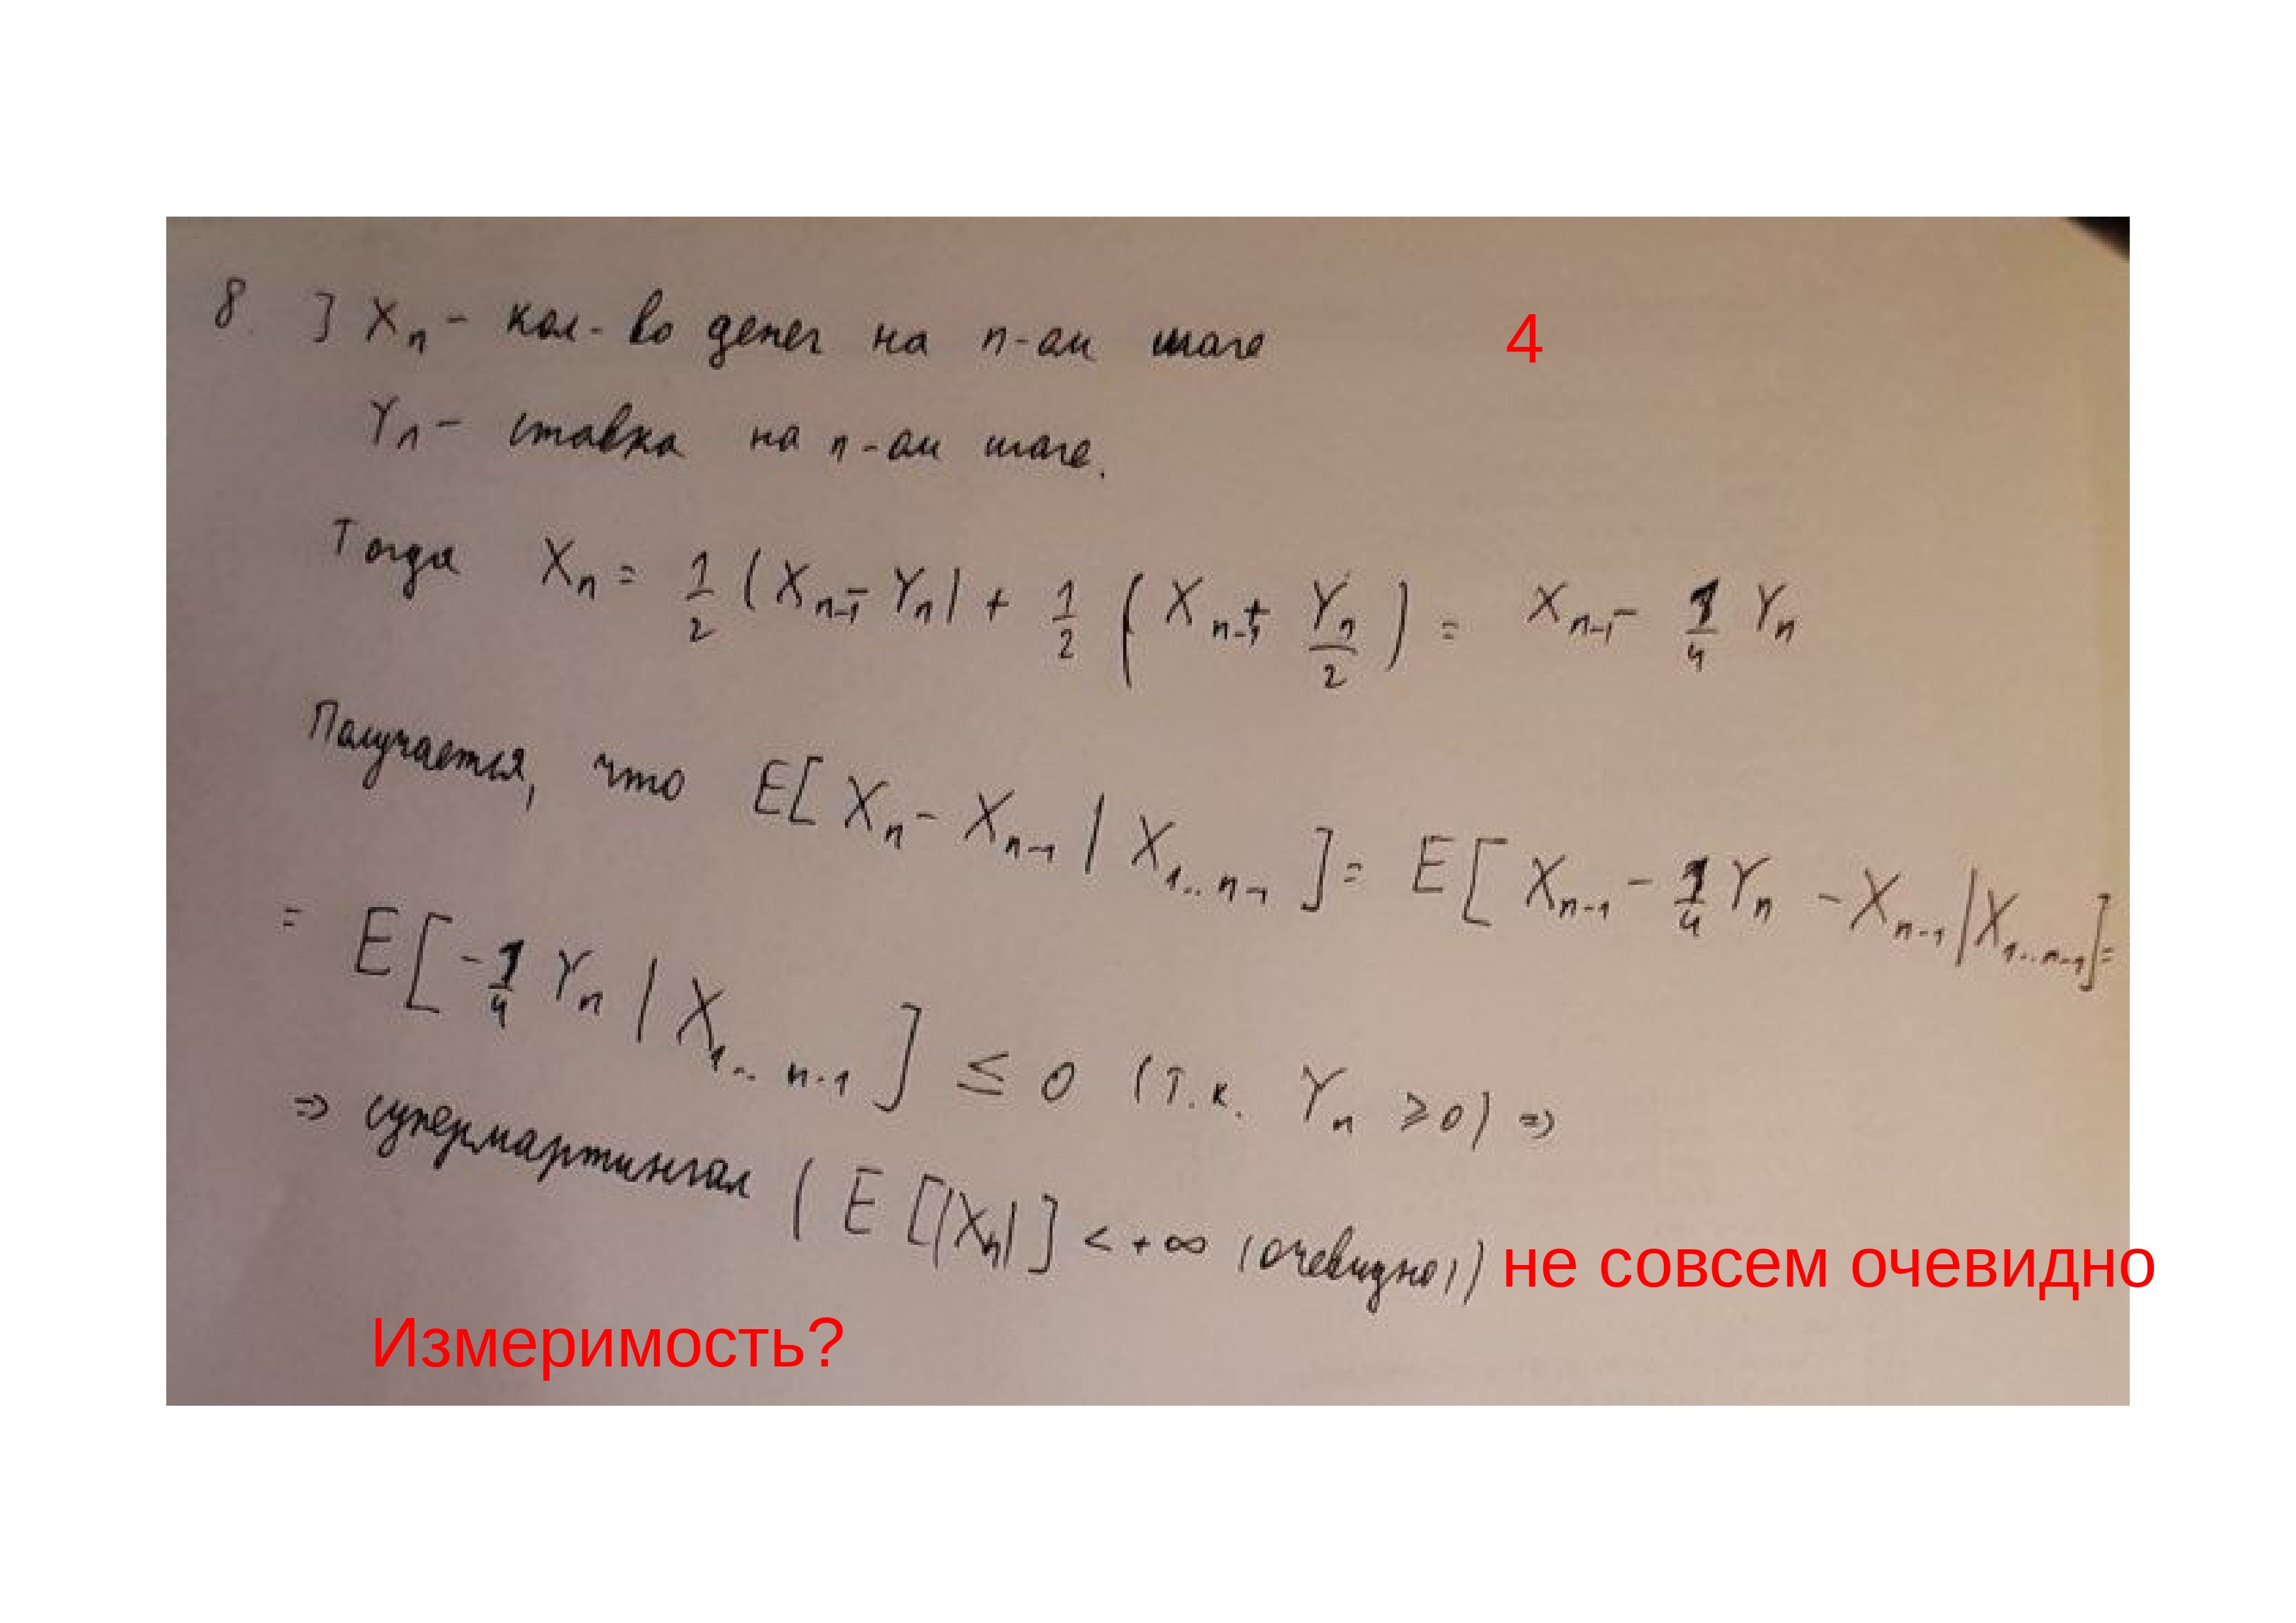 8. ] Xₙ - кол-во денег на n-ом шаге 4
Yₙ - ставка на n-ом шаге.
Тогда Xₙ = 1/2 (Xₙ₋₁ - Yₙ) + 1/2 (Xₙ₋₁ + Yₙ/2) = Xₙ₋₁ - 1/4 Yₙ
Получается, что E[Xₙ - Xₙ₋₁ | X₁..ₙ₋₁] = E[Xₙ₋₁ - 1/4 Yₙ - Xₙ₋₁ | X₁..ₙ₋₁] =
= E[-1/4 Yₙ | X₁..ₙ₋₁] ≤ 0 (т.к. Yₙ ≥ 0) ⇒
⇒ супермартингал (E[|Xₙ|] < +∞ (очевидно)) не совсем очевидно
Измеримость?